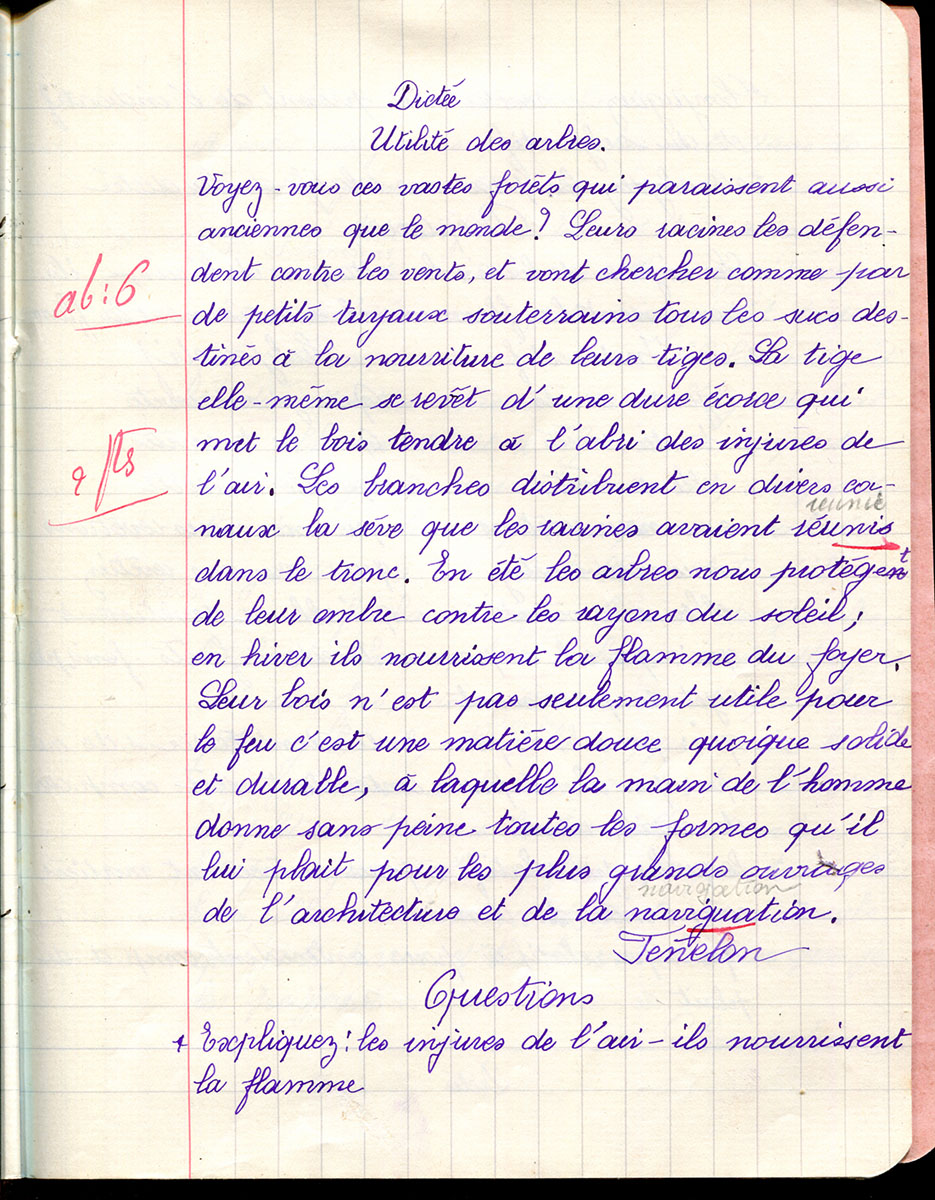 Dictée
Utilité des arbres.
Voyez-vous ces vastes forêts qui paraissent aussi
anciennes que le monde? Leurs racines les défen-
dent contre les vents, et vont chercher comme par
ab: 6
de petits tuyaux souterrains tous les sucs des-
tinés à la nourriture de leurs tiges. La tige
elle-même se revêt d'une dure écorce qui
met le bois tendre à l'abri des injures de
l'air. Les branches distribuent en divers ca-
réunie
naux la sève que les racines avaient réunis
dans le tronc. En été les arbres nous protégent
de leur ombre contre les rayons du soleil;
en hiver ils nourrissent la flamme du foyer.
Leur bois n'est pas seulement utile pour
le feu c'est une matière douce quoique solide
et durable, à laquelle la main de l'homme
donne sans peine toutes les formes qu'il
lui plait pour les plus grands ouvrages
navigation
de l'architecture et de la naviguation.
Fenelon
Questions
Expliquez: les injures de l'air - ils nourrissent
la flamme